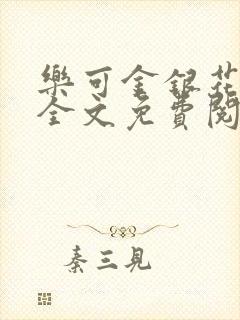 樂可金銀花
全文免費閱
秦三見